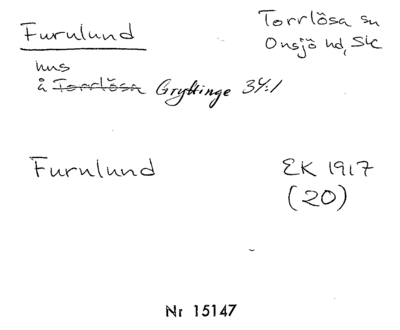 Furulund
Torrlösa sn
Onsjö hd, Sk
hus
å Torrlösa Gryttinge 34:1
Furulund
EK 1917
(20)
Nr 15147